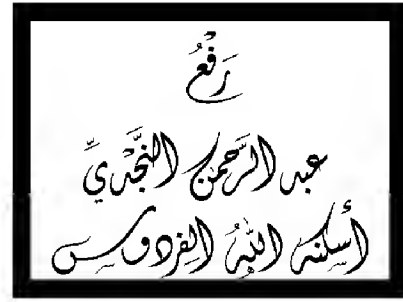 رَفْعُ
عبد الرَّحمن النَّجْديِّ
أسكنه اللهُ الفردوس